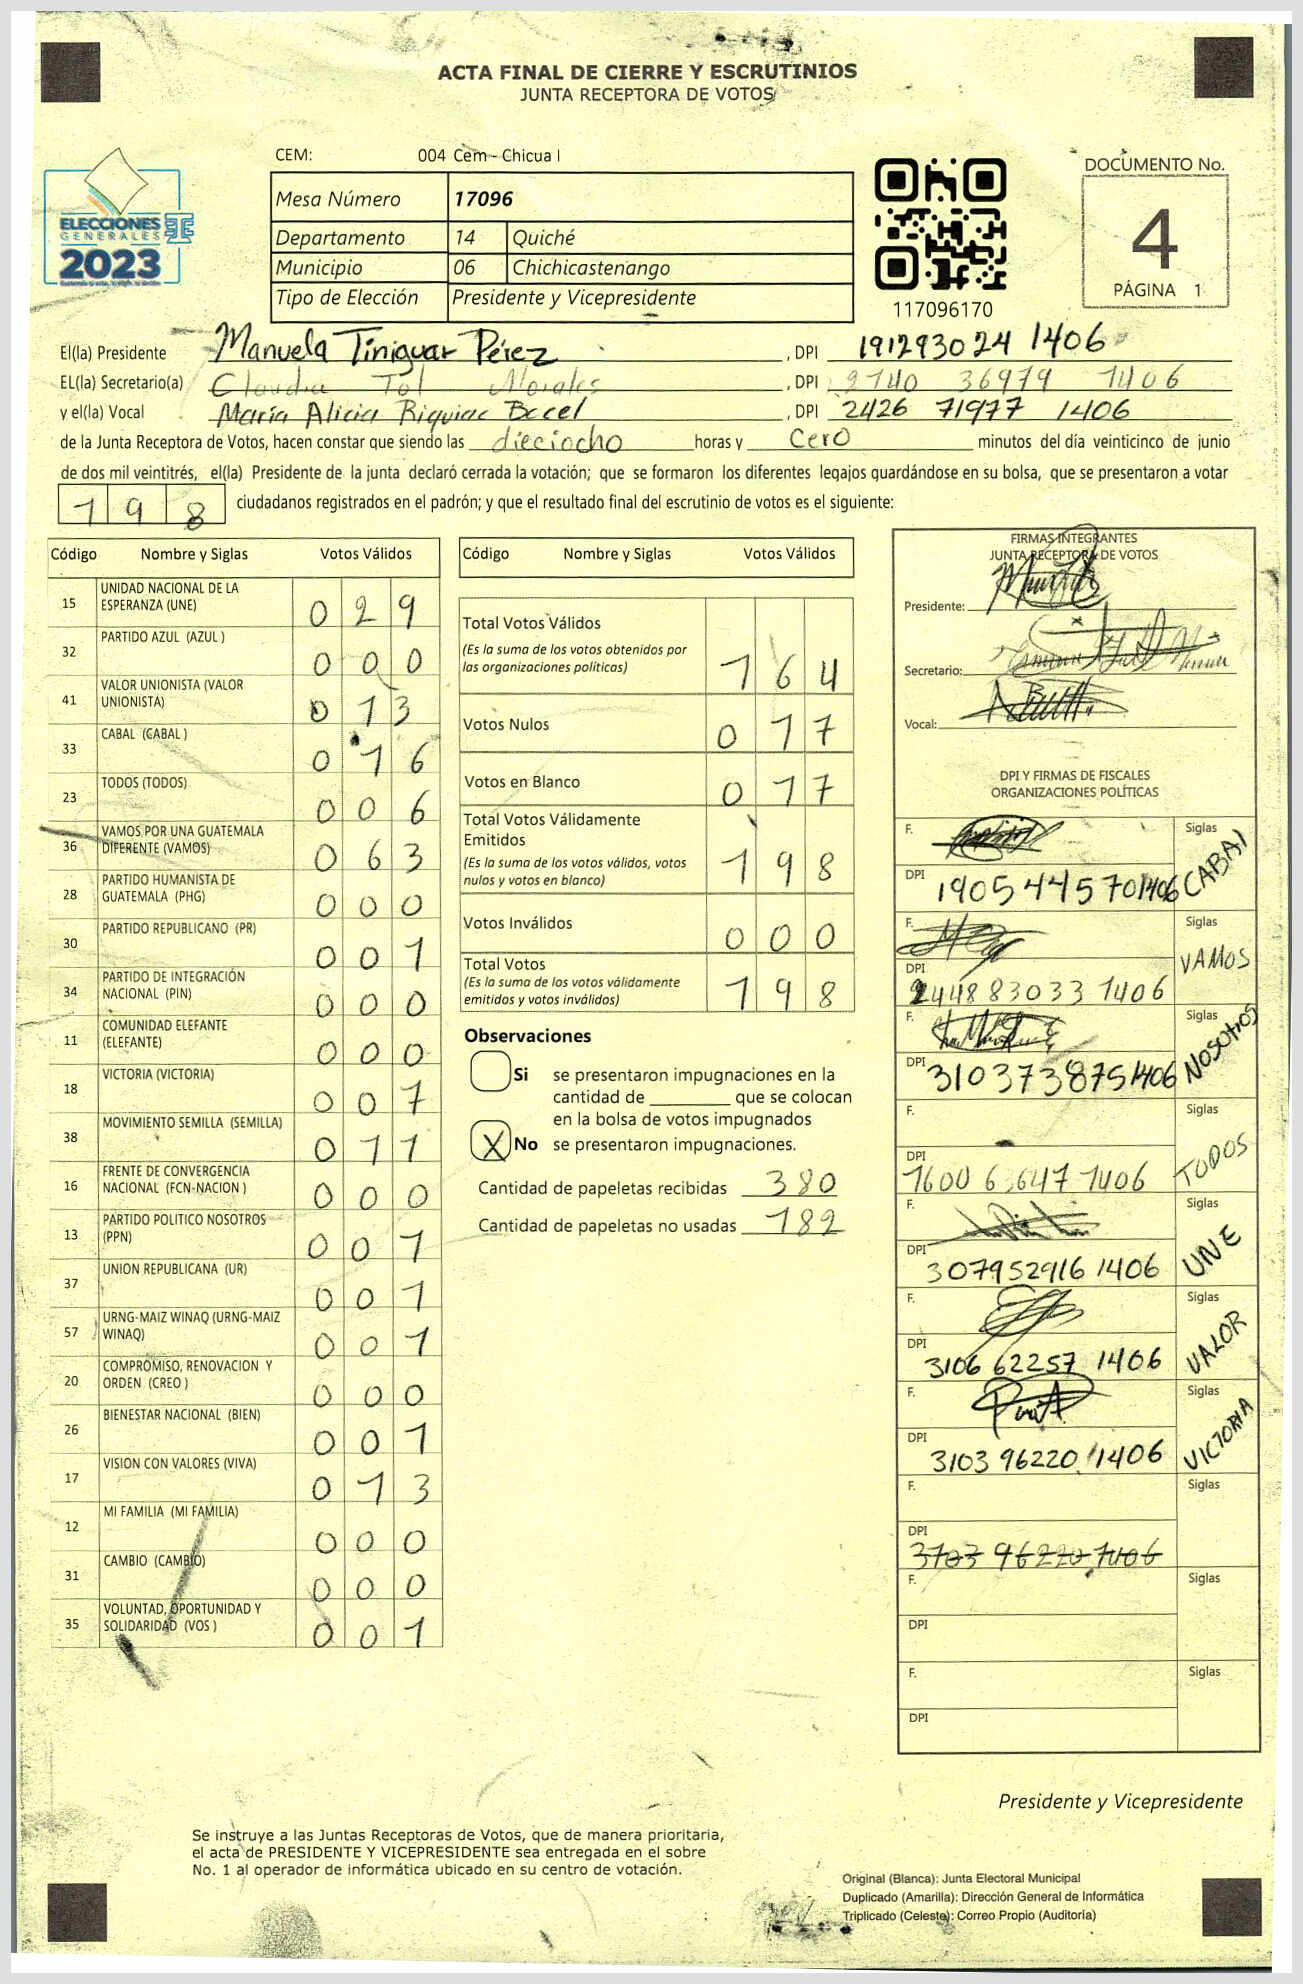 ACTA FINAL DE CIERRE Y ESCRUTINIOS
JUNTA RECEPTORA DE VOTOS
CEM: 004 Cem - Chicua I
ELECCIONES
GENERALES
2023
Mesa Número 17096
Departamento 14 Quiché
Municipio 06 Chichicastenango
Tipo de Elección Presidente y Vicepresidente
117096170
DOCUMENTO No.
4
PÁGINA 1
El(la) Presidente Manuela Tiniguar Pérez , DPI 191293024 1406
EL(la) Secretario(a) Claudia Tol Morales , DPI 2740 36979 1406
y el(la) Vocal María Alicia Riquiac Bocel , DPI 2426 71977 1406
de la Junta Receptora de Votos, hacen constar que siendo las dieciocho horas y cero minutos del día veinticinco de junio
de dos mil veintitrés, el(la) Presidente de la junta declaró cerrada la votación; que se formaron los diferentes legajos guardándose en su bolsa, que se presentaron a votar
198 ciudadanos registrados en el padrón; y que el resultado final del escrutinio de votos es el siguiente:
Código Nombre y Siglas Votos Válidos
15 UNIDAD NACIONAL DE LA ESPERANZA (UNE) 029
32 PARTIDO AZUL (AZUL ) 000
41 VALOR UNIONISTA (VALOR UNIONISTA) 013
33 CABAL (CABAL ) 016
23 TODOS (TODOS) 006
36 VAMOS POR UNA GUATEMALA DIFERENTE (VAMOS) 063
28 PARTIDO HUMANISTA DE GUATEMALA (PHG) 000
30 PARTIDO REPUBLICANO (PR) 001
34 PARTIDO DE INTEGRACIÓN NACIONAL (PIN) 000
11 COMUNIDAD ELEFANTE (ELEFANTE) 000
18 VICTORIA (VICTORIA) 007
38 MOVIMIENTO SEMILLA (SEMILLA) 011
16 FRENTE DE CONVERGENCIA NACIONAL (FCN-NACION ) 000
13 PARTIDO POLITICO NOSOTROS (PPN) 001
37 UNION REPUBLICANA (UR) 001
57 URNG-MAIZ WINAQ (URNG-MAIZ WINAQ) 001
20 COMPROMISO, RENOVACION Y ORDEN (CREO ) 000
26 BIENESTAR NACIONAL (BIEN) 001
17 VISION CON VALORES (VIVA) 013
12 MI FAMILIA (MI FAMILIA) 000
31 CAMBIO (CAMBIO) 000
35 VOLUNTAD, OPORTUNIDAD Y SOLIDARIDAD (VOS ) 001
Código Nombre y Siglas Votos Válidos
Total Votos Válidos 164
(Es la suma de los votos obtenidos por
las organizaciones políticas)
Votos Nulos 017
Votos en Blanco 017
Total Votos Válidamente
Emitidos 198
(Es la suma de los votos válidos, votos
nulos y votos en blanco)
Votos Inválidos 000
Total Votos 198
(Es la suma de los votos válidamente
emitidos y votos inválidos)
Observaciones
Si se presentaron impugnaciones en la
cantidad de ________ que se colocan
en la bolsa de votos impugnados
X No se presentaron impugnaciones.
Cantidad de papeletas recibidas 380
Cantidad de papeletas no usadas 182
FIRMAS INTEGRANTES
JUNTA RECEPTORA DE VOTOS
Presidente:
Secretario:
Vocal:
DPI Y FIRMAS DE FISCALES
ORGANIZACIONES POLÍTICAS
F. Siglas CABAL
DPI 1905 44570 1406
F. Siglas VAMOS
DPI 2448 83033 1406
F. Siglas NOSOTROS
DPI 3103738751406
F. Siglas TODOS
DPI 1600 6 647 1406
F. Siglas UNE
DPI 307952916 1406
F. Siglas VALOR
DPI 3106 62257 1406
F. Siglas VICTORIA
DPI 3103 96220 1406
F. Siglas
DPI 3103 96220 1406
F. Siglas
DPI
F. Siglas
DPI
Presidente y Vicepresidente
Se instruye a las Juntas Receptoras de Votos, que de manera prioritaria,
el acta de PRESIDENTE Y VICEPRESIDENTE sea entregada en el sobre
No. 1 al operador de informática ubicado en su centro de votación.
Original (Blanca): Junta Electoral Municipal
Duplicado (Amarilla): Dirección General de Informática
Triplicado (Celeste): Correo Propio (Auditoría)